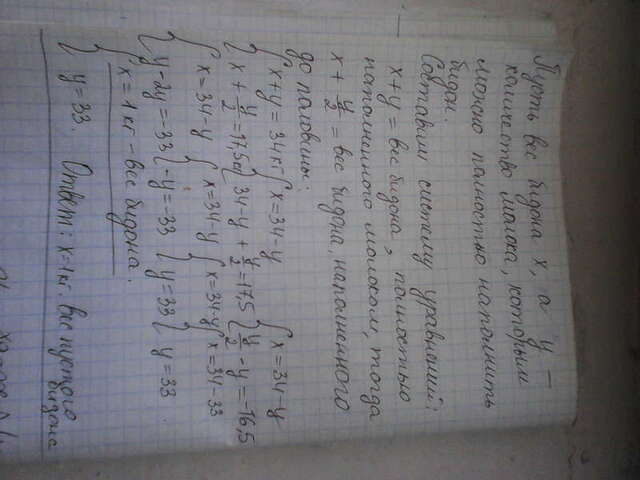 Пусть вес бидона x, а y —
количество молока, которым
можно полностью наполнить
бидон.
Составим систему уравнений:
x+y = вес бидона, полностью
наполненного молоком, тогда
x + y/2 = вес бидона, наполненного
до половины:
{ x+y=34кг { x=34-y { x=34-y
{ x + y/2 = 17,5кг { 34-y + y/2 = 17,5 { y/2 - y = -16,5
{ x=34-y { x=34-y { x=34-y { x=34-33
{ y-2y=-33 { -y=-33 { y=33 { y=33
{ x=1кг - вес бидона.
{ y=33. Ответ: x=1кг. вес пустого
бидона